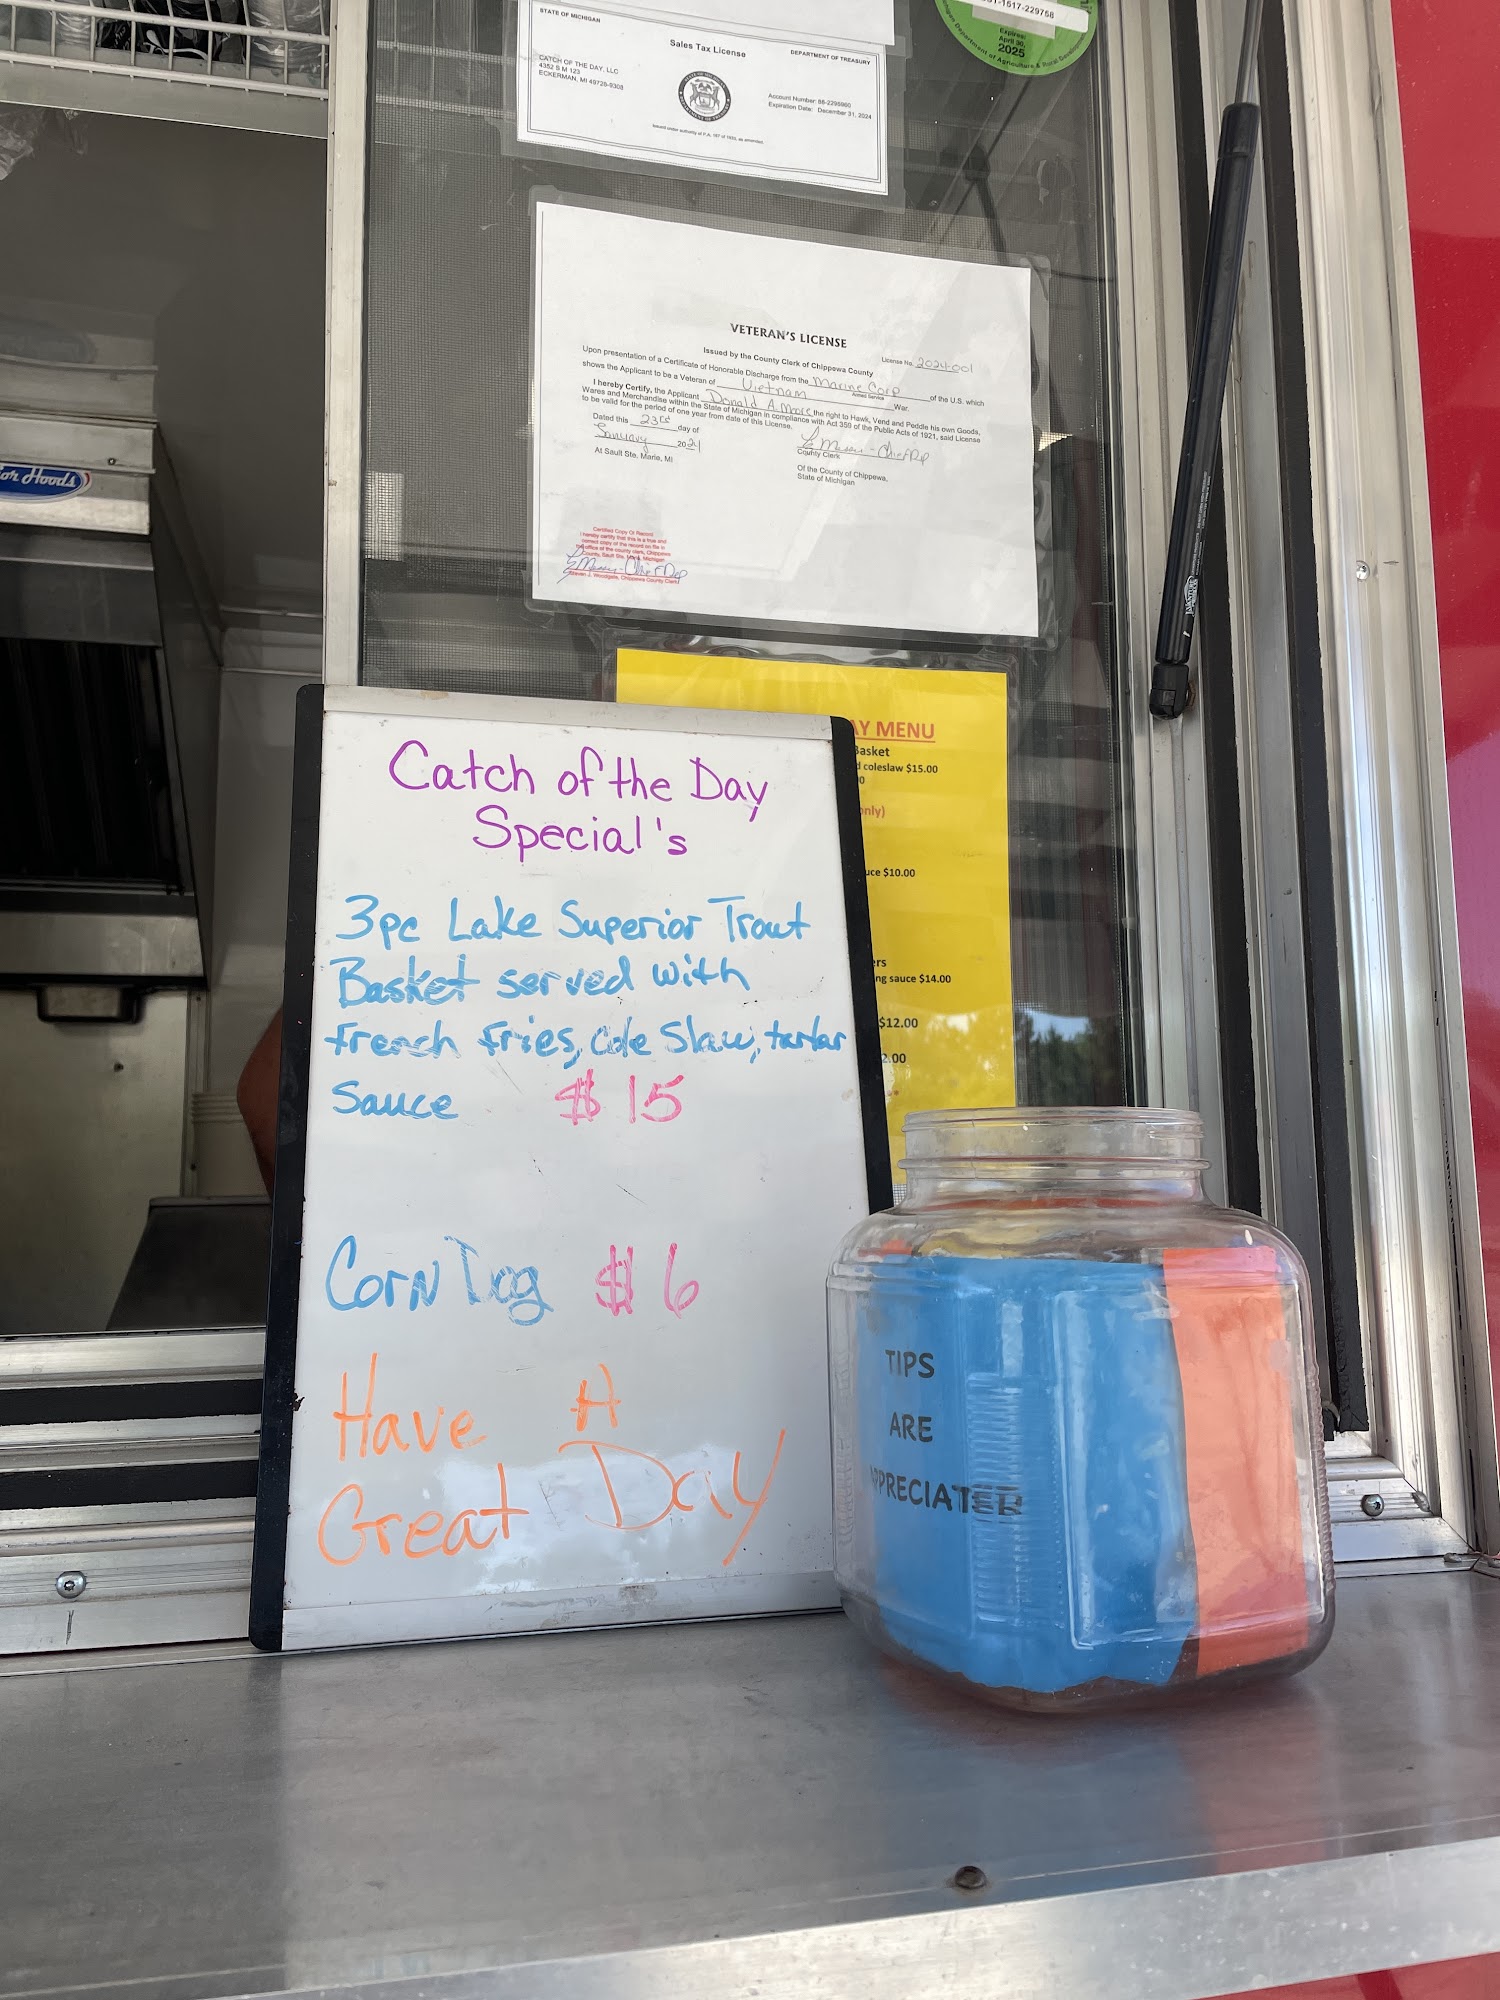 STATE OF MICHIGAN
Sales Tax License
DEPARTMENT OF TREASURY
CATCH OF THE DAY, LLC
4352 S M 123
ECKERMAN, MI 49728-9308
Account Number: 86-2295960
Expiration Date: December 31, 2024
Issued under authority of P.A. 167 of 1933, as amended.
1517-229758
Expires:
April 30,
2025
Department of Agriculture & Rural Development
VETERAN'S LICENSE
Issued by the County Clerk of Chippewa County
License No. 2024-001
Upon presentation of a Certificate of Honorable Discharge from the Marine Corp of the U.S. which
Armed Service
shows the Applicant to be a Veteran of Vietnam War.
I hereby Certify, the Applicant Donald A Moore the right to Hawk, Vend and Peddle his own Goods,
Wares and Merchandise within the State of Michigan in compliance with Act 359 of the Public Acts of 1921, said License
to be valid for the period of one year from date of this License.
Dated this 23rd day of
January 2024
At Sault Ste. Marie, MI
County Clerk
Of the County of Chippewa,
State of Michigan
Certified Copy Of Record
I hereby certify that this is a true and
correct copy of the record on file in
the office of the county clerk, Chippewa
County, Sault Ste. Marie, Michigan
Chippewa County Clerk
or Hoods
AY MENU
Basket
d coleslaw $15.00
only)
uce $10.00
ers
ng sauce $14.00
$12.00
2.00
Catch of the Day
Special's
3pc Lake Superior Trout
Basket served with
french fries, cole slaw, tartar
sauce $15
Corn Dog $6
Have A
Great Day
TIPS
ARE
APPRECIATED